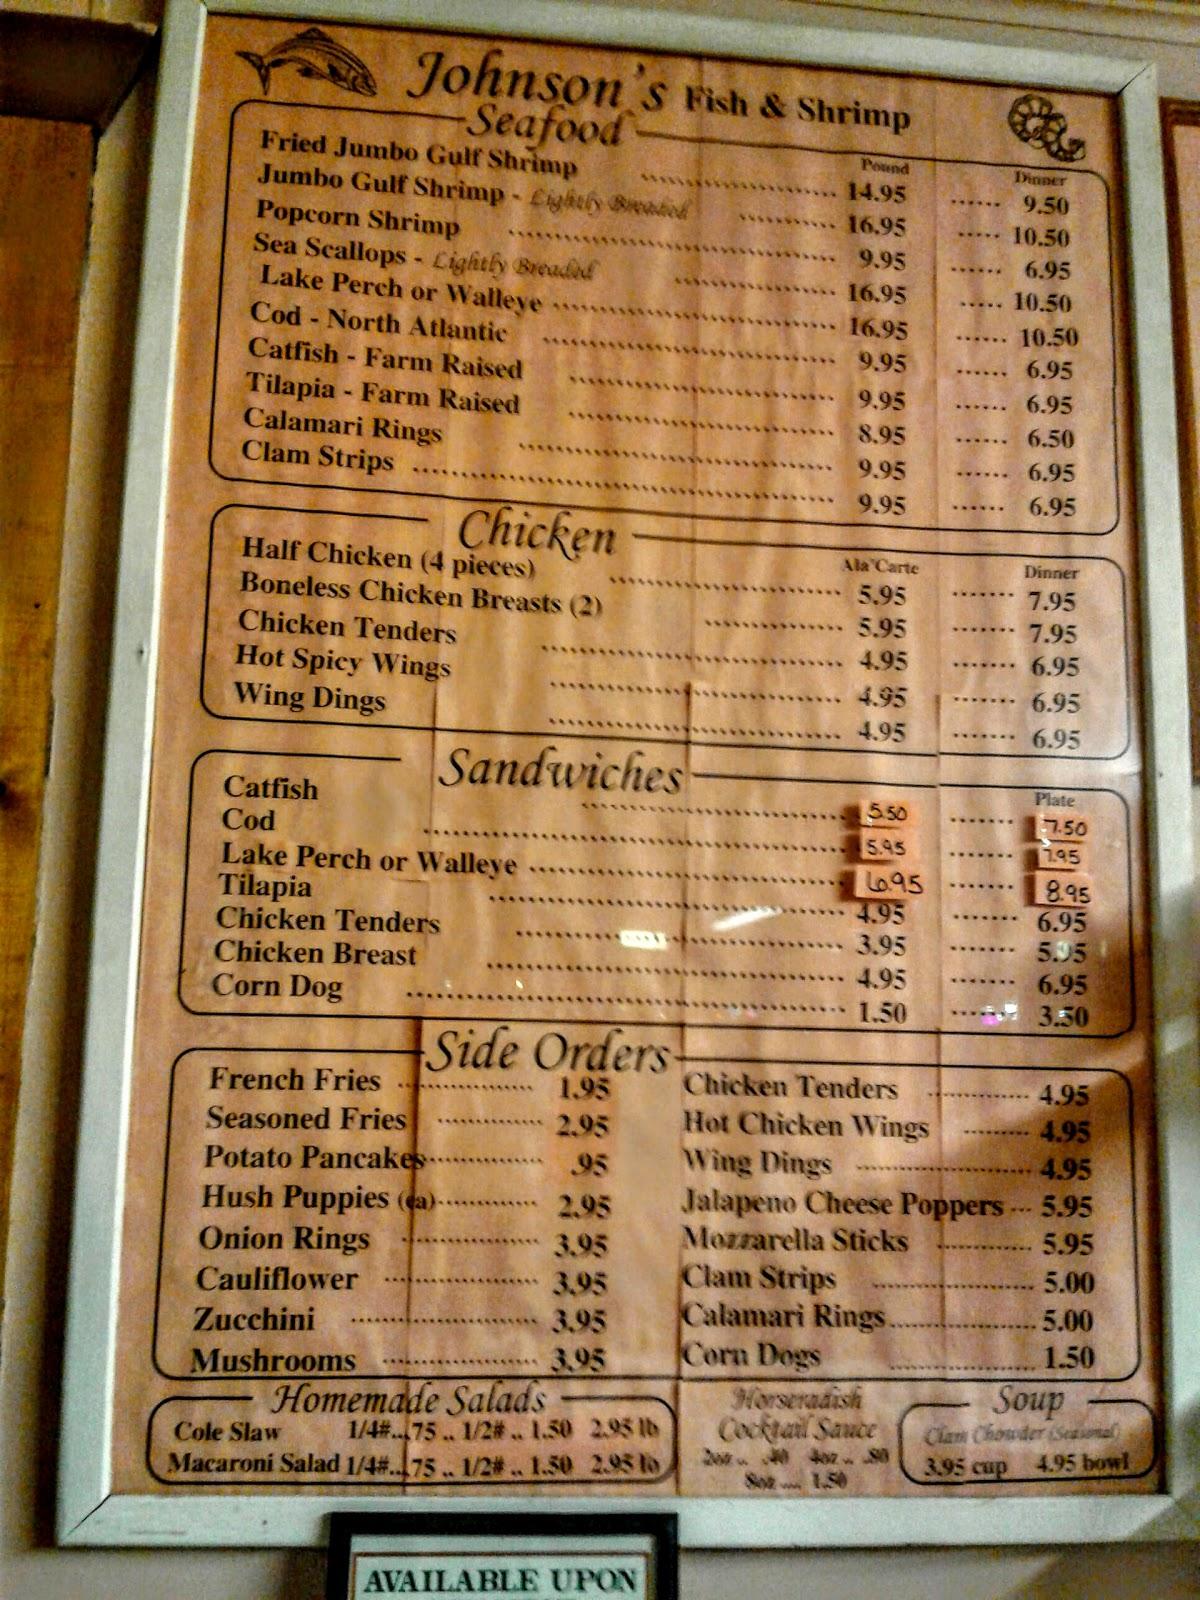 Johnson's Fish & Shrimp
Seafood
Pound Dinner
Fried Jumbo Gulf Shrimp ........ 14.95 ...... 9.50
Jumbo Gulf Shrimp - Lightly Breaded ........ 16.95 ..... 10.50
Popcorn Shrimp ........ 9.95 ...... 6.95
Sea Scallops - Lightly Breaded ........ 16.95 ..... 10.50
Lake Perch or Walleye ........ 16.95 ...... 10.50
Cod - North Atlantic ........ 9.95 ...... 6.95
Catfish - Farm Raised ........ 9.95 ...... 6.95
Tilapia - Farm Raised ........ 8.95 ...... 6.50
Calamari Rings ........ 9.95 ...... 6.95
Clam Strips ........ 9.95 ...... 6.95
Chicken
Ala'Carte Dinner
Half Chicken (4 pieces) ........ 5.95 ....... 7.95
Boneless Chicken Breasts (2) ........ 5.95 ....... 7.95
Chicken Tenders ........ 4.95 ....... 6.95
Hot Spicy Wings ........ 4.95 ....... 6.95
Wing Dings ........ 4.95 ....... 6.95
Sandwiches
Plate
Catfish ........ 5.50 ....... 7.50
Cod ........ 5.95 ....... 7.95
Lake Perch or Walleye ........ 6.95 ....... 8.95
Tilapia ........ 4.95 ....... 6.95
Chicken Tenders ........ 3.95 ....... 5.95
Chicken Breast ........ 4.95 ....... 6.95
Corn Dog ........ 1.50 ....... 3.50
Side Orders
French Fries ........ 1.95
Seasoned Fries ........ 2.95
Potato Pancakes ........ .95
Hush Puppies (ea) ........ 2.95
Onion Rings ........ 3.95
Cauliflower ........ 3.95
Zucchini ........ 3.95
Mushrooms ........ 3.95
Chicken Tenders ........ 4.95
Hot Chicken Wings ........ 4.95
Wing Dings ........ 4.95
Jalapeno Cheese Poppers ... 5.95
Mozzarella Sticks ........ 5.95
Clam Strips ........ 5.00
Calamari Rings ........ 5.00
Corn Dogs ........ 1.50
Homemade Salads
Cole Slaw 1/4#...75 .. 1/2# .. 1.50 2.95 lb
Macaroni Salad 1/4#...75 .. 1/2# .. 1.50 2.95 lb
Horseradish
Cocktail Sauce
2oz .. .40 4oz .. .80
8oz .... 1.50
Soup
Clam Chowder (Seasonal)
3.95 cup 4.95 bowl
AVAILABLE UPON